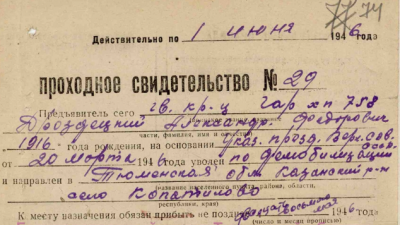 74
Действительно по 1 июня 1946 года
ПРОХОДНОЕ СВИДЕТЕЛЬСТВО № 29
Предъявитель сего гв. кр-ц Гар хп 758
Дроздецкий Александр Федорович
части, фамилия, имя и
1916 года рождения, на основании Указ. през. Верх. Сов.
от 20 марта 1946 уволен по демобилизации
и направлен в Тюменская обл. Казанский р-н
название населенного пункта, района, области,
село Копотилово
республики, края)
К месту назначения обязан прибыть не позднее двадцать восьмого мая 1946
(число и месяц прописью)